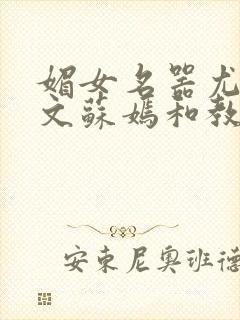 媚女名器尤
文蘇媽和教
安東尼奧班德